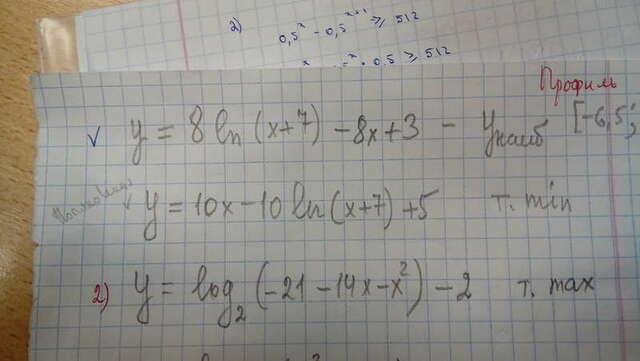 2) 0,5^x - 0,5^{x+1} ≥ 512
· 0,5 ≥ 512
Профиль
√ y = 8 ln (x+7) - 8x + 3 - y наиб [-6,5;
√ y = 10x - 10 ln (x+7) + 5 т. min
2) y = log_2 (-21 - 14x - x^2) - 2 т. max